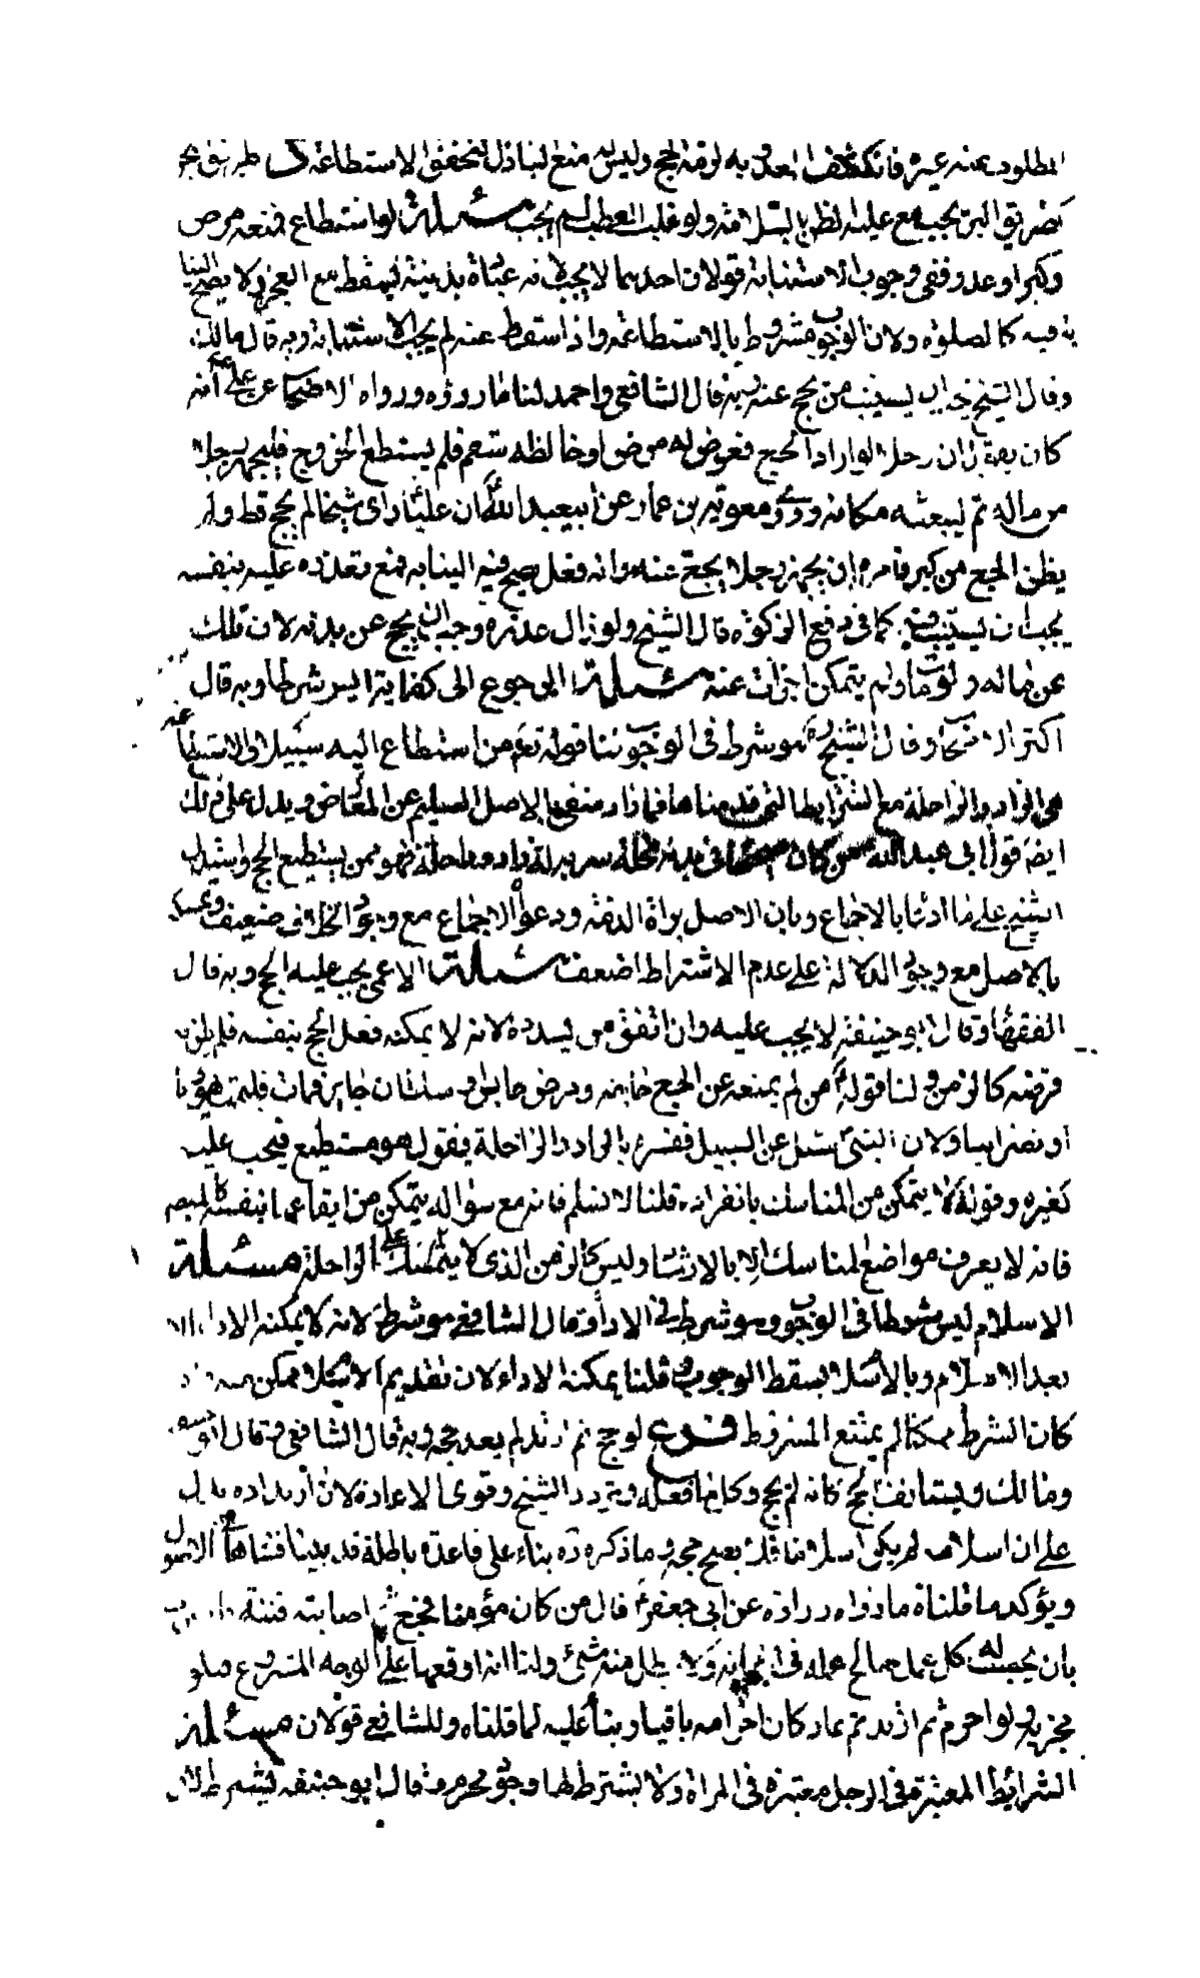 المطلوب عنه غيره فانكشف العدو به لوقته الحج وليس له منع لنا ذلك لتحقق الاستطاعة طريق البحر
كطريق البر يجب مع غلبة الظن بالسلامة ولو غلب العطب لم يجب مسئلة لو استطاع فمنعه مرض
وكبر او عدو ففي وجوب الاستنابة قولان احدهما لا يجب لانه عبادة بدنية فيسقط مع العجز ولا يصح النيا
بة فيه كالصلوة ولان الوجوب مشروط بالاستطاعة واذا سقط عنه لم يجب الاستنابة وبه قال مالك
وقال الشيخ يجب ان يستنيب من يحج عنه وبه قال الشافعي واحمد لنا ما رووه ورواه الاصحاب عن علي ع انه
كان يقول ان رجلا اراد الحج فعرض له مرض او خالطه سقم فلم يستطع الخروج فليجهز رجلا
من ماله ثم ليبعثه مكانه وروى معوية بن عمار عن ابيعبد الله ان عليا راى شيخا لم يحج قط ولم
يطق الحج من كبر فامره ان يجهز رجلا يحج عنه ولانه فعل يصح فيه النيابة فمع تعذره عليه بنفسه
يجب ان يستنيب فيه كما في دفع الزكوة قال الشيخ ولو زال عذره وجب ان يحج عن بدنه لان تلك
عن ماله ولو مات ولم يتمكن اجزات عنه مسئلة الرجوع الى كفاية ليس شرطا وبه قال
اكثر الاصحاب وقال الشيخ ره هو شرط في الوجوب لنا قوله تعم من استطاع اليه سبيلا والاستطاعة
هي الزاد والراحلة مع الشرايط التي قدمناها فما زاد منفي بالاصل السليم عن المعارض ويدل على ذلك
ايضا قول ابي عبد الله من كان صحيحا في بدنه مخلى سربه له زاد وراحلة فهو ممن يستطيع الحج واستدل
الشيخ على ما ادعاه بالاجماع وبان الاصل براءة الذمة ودعوا الاجماع مع وجود الخلاف ضعيف وتمسك
بالاصل مع وجود الدلالة على عدم الاشتراط اضعف مسئلة الاعمى يجب عليه الحج وبه قال
الفقهاء وقال ابو حنيفة لا يجب عليه وان اتفق من يسدده لانه لا يمكنه فعل الحج بنفسه فلم يلزمه
فرضه كالزمن لنا قوله من لم يمنعه عن الحج حاجة ومرض حابس او سلطان جاير فمات فليمت يهوديا
او نصرانيا ولان النبي سئل عن السبيل ففسره بالزاد والراحلة فنقول هو مستطيع فيجب عليه
كغيره وقوله لا يتمكن من المناسك بانفراده قلنا لا نسلم فانه مع سؤاله يتمكن من ايقاعها بنفسه كالمبصر
فانه لا يعرف مواضع المناسك الا بالارشاد وليس كالزمن الذي لا يتمسك على الراحلة مسئلة
الاسلام ليس شرطا في الوجوب وهو شرط في الاداء وقال الشافعي هو شرط لانه لا يمكنه الاداء الا
بعد الاسلام وبالاسلام يسقط الوجوب قلنا يمكنه الاداء لان تقديم الاسلام ممكن
كان الشرط ممكنا لم يمتنع المشروط فرع لو حج ثم ارتد لم يعد حجه وبه قال الشافعي وقال ابو حنيفة
ومالك ويستانف الحج كانه لم يحج وكلما فعله وتردد الشيخ وقوى الاعادة لان ارتداده يدل
على ان اسلامه لم يكن اسلاما فلا يصح حجه وما ذكره ره بناء على قاعدة باطلة قد بينا فسادها في الاصول
ويؤكد ما قلناه ما رواه زرارة عن ابي جعفر قال من كان مؤمنا فحج ثم اصابته فتنة
بان يحسب له كل عمل صالح عمله في ايمانه ولا يبطل منه شئ ولنا انه اوقعها على الوجه المشروع
مجزية ولو احرم ثم ارتد ثم عاد كان احرامه باقيا وبناء عليه لما قلناه وللشافعي قولان مسئلة
الشرايط المعتبرة في الرجل معتبرة في المراة ولا يشترط لها وجود محرم وقال ابو حنيفة يشترط